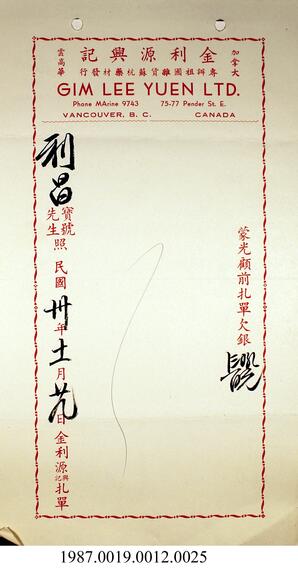 加拿大
金利源興記
專辦祖國雜貨蘇杭藥材發行
雲高華
GIM LEE YUEN LTD.
Phone MArine 9743 75-77 Pender St. E.
VANCOUVER, B. C. CANADA
蒙光顧前扎單欠銀
利昌寶號先生照 民國卅年十一月廿九日金利源興記扎單
1987.0019.0012.0025